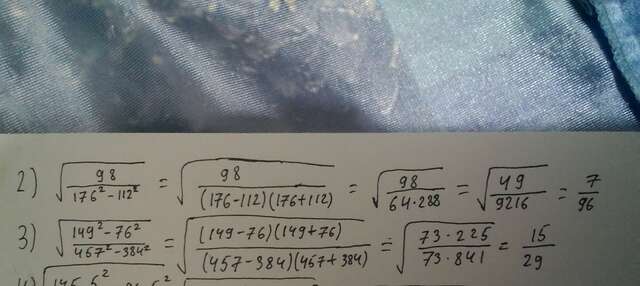 2) √(98/(176² - 112²)) = √(98/((176-112)(176+112))) = √(98/(64·288)) = √(49/9216) = 7/96
3) √((149² - 76²)/(457² - 384²)) = √(((149-76)(149+76))/((457-384)(457+384))) = √((73·225)/(73·841)) = 15/29